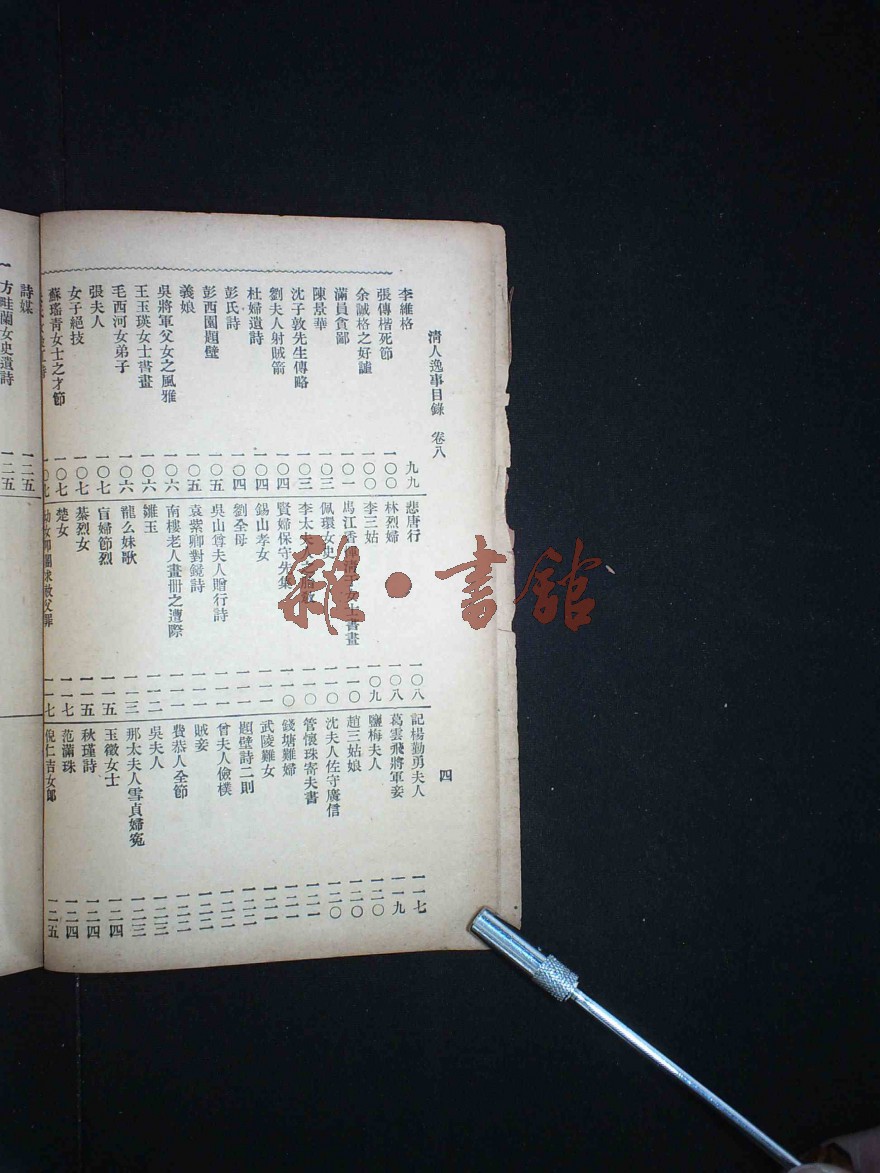 清人逸事目錄 卷八
四
李維格 九九
張傳楷死節 一〇〇
余誠格之好謔 一〇〇
滿員貪鄙 一〇一
陳景華 一〇三
沈子敦先生傳略 一〇三
劉夫人射賊箭 一〇四
杜婦遺詩 一〇四
彭氏詩 一〇四
彭西園題壁 一〇五
義娘 一〇五
吳將軍父女之風雅 一〇六
王玉瑛女士書畫 一〇六
毛西河女弟子 一〇六
張夫人 一〇七
女子絕技 一〇七
蘇瑤青女士之才節 一〇七
悲唐行 一〇八
林烈婦 一〇八
李三姑 一〇九
馬江香 書畫 一一〇
佩環女史 一一〇
李太夫人 一一〇
賢婦保守先集 一一〇
錫山孝女 一一一
劉全母 一一一
吳山尊夫人贈行詩 一一一
袁紫卿對鏡詩 一一一
南樓老人畫冊之遭際 一一一
雛玉 一一二
龍么妹歌 一一三
盲婦節烈 一一五
蓁烈女 一一五
楚女 一一七
一一七
記楊勤勇夫人 一一七
葛雲飛將軍妾 一一九
鹽梅夫人 一二〇
趙三姑娘 一二〇
沈夫人佐守廣信 一二〇
管懷珠寄夫書 一二一
錢塘難婦 一二一
武陵難女 一二一
題壁詩二則 一二二
曾夫人儉樸 一二二
賊妾 一二二
費恭人全節 一二二
吳夫人 一二三
那太夫人雪貞婦冤 一二三
玉徵女士 一二四
秋瑾詩 一二四
范滿珠 一二四
倪仁吉女郎 一二五
詩媒 一二五
方畦蘭女史遺詩 一二五
雜·書館